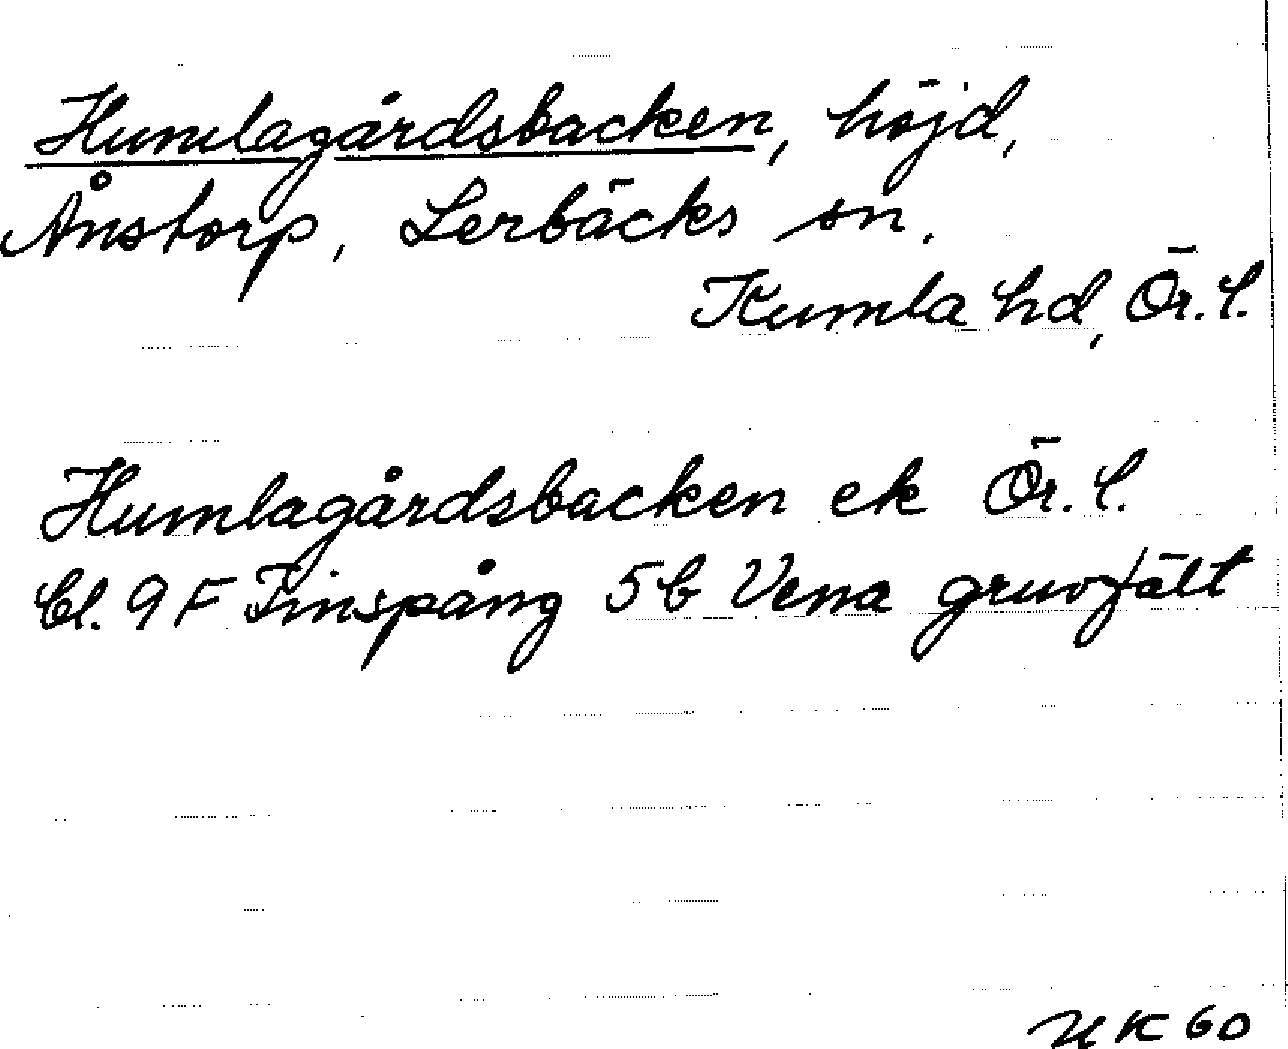 Humlagårdsbacken, höjd,
Ånstorp, Lerbäcks sn.
Kumla hd, Ör. l.
Humlagårdsbacken ek Ör. l.
bl. 9 F Finspång 5b Vena gruvfält
UK 60